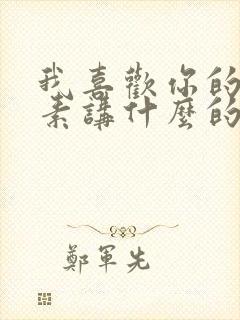 我喜歡你的
素講什麼的
鄭軍先